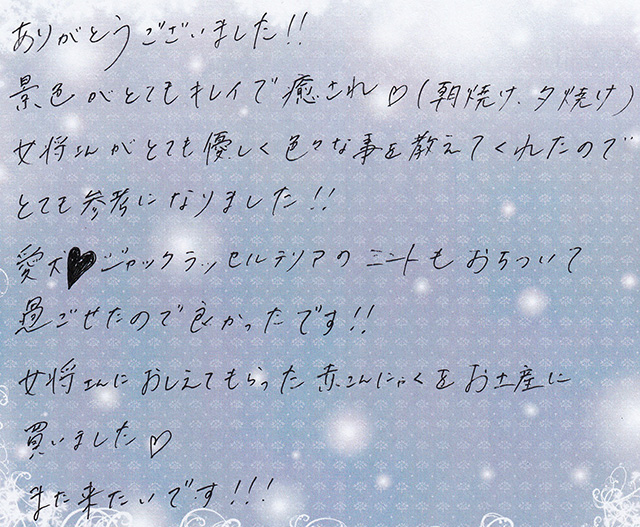 ありがとうございました!!
景色がとてもキレイで癒され♡(朝焼け、夕焼け)
女将さんがとても優しく色々な事を教えてくれたので
とても参考になりました!!
愛犬♥ジャックラッセルテリアのミントもおちついて
過ごせたので良かったです!!
女将さんにおしえてもらった赤こんにゃくをお土産に
買いました♡
また来たいです!!!